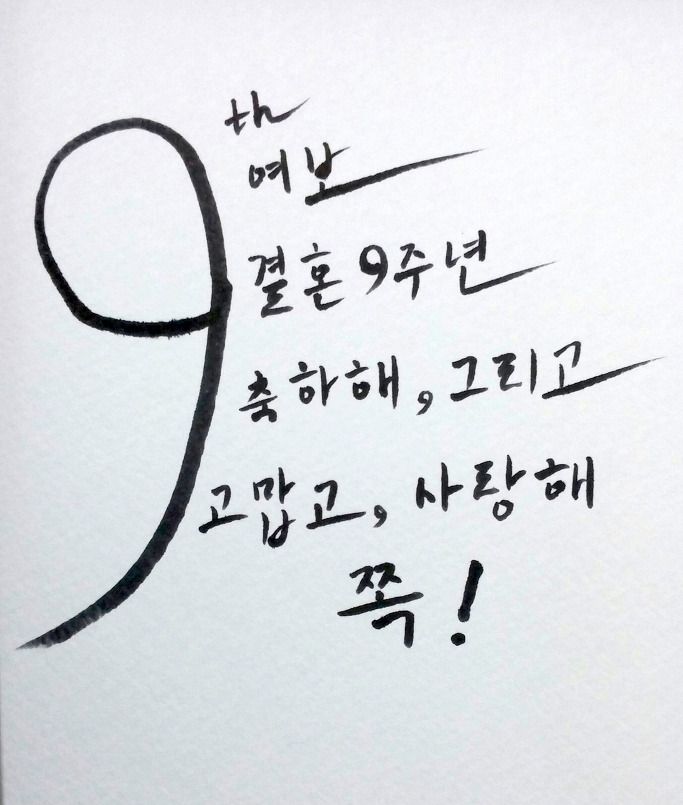 9th
여보
결혼 9주년
축하해, 그리고
고맙고, 사랑해
쪽!